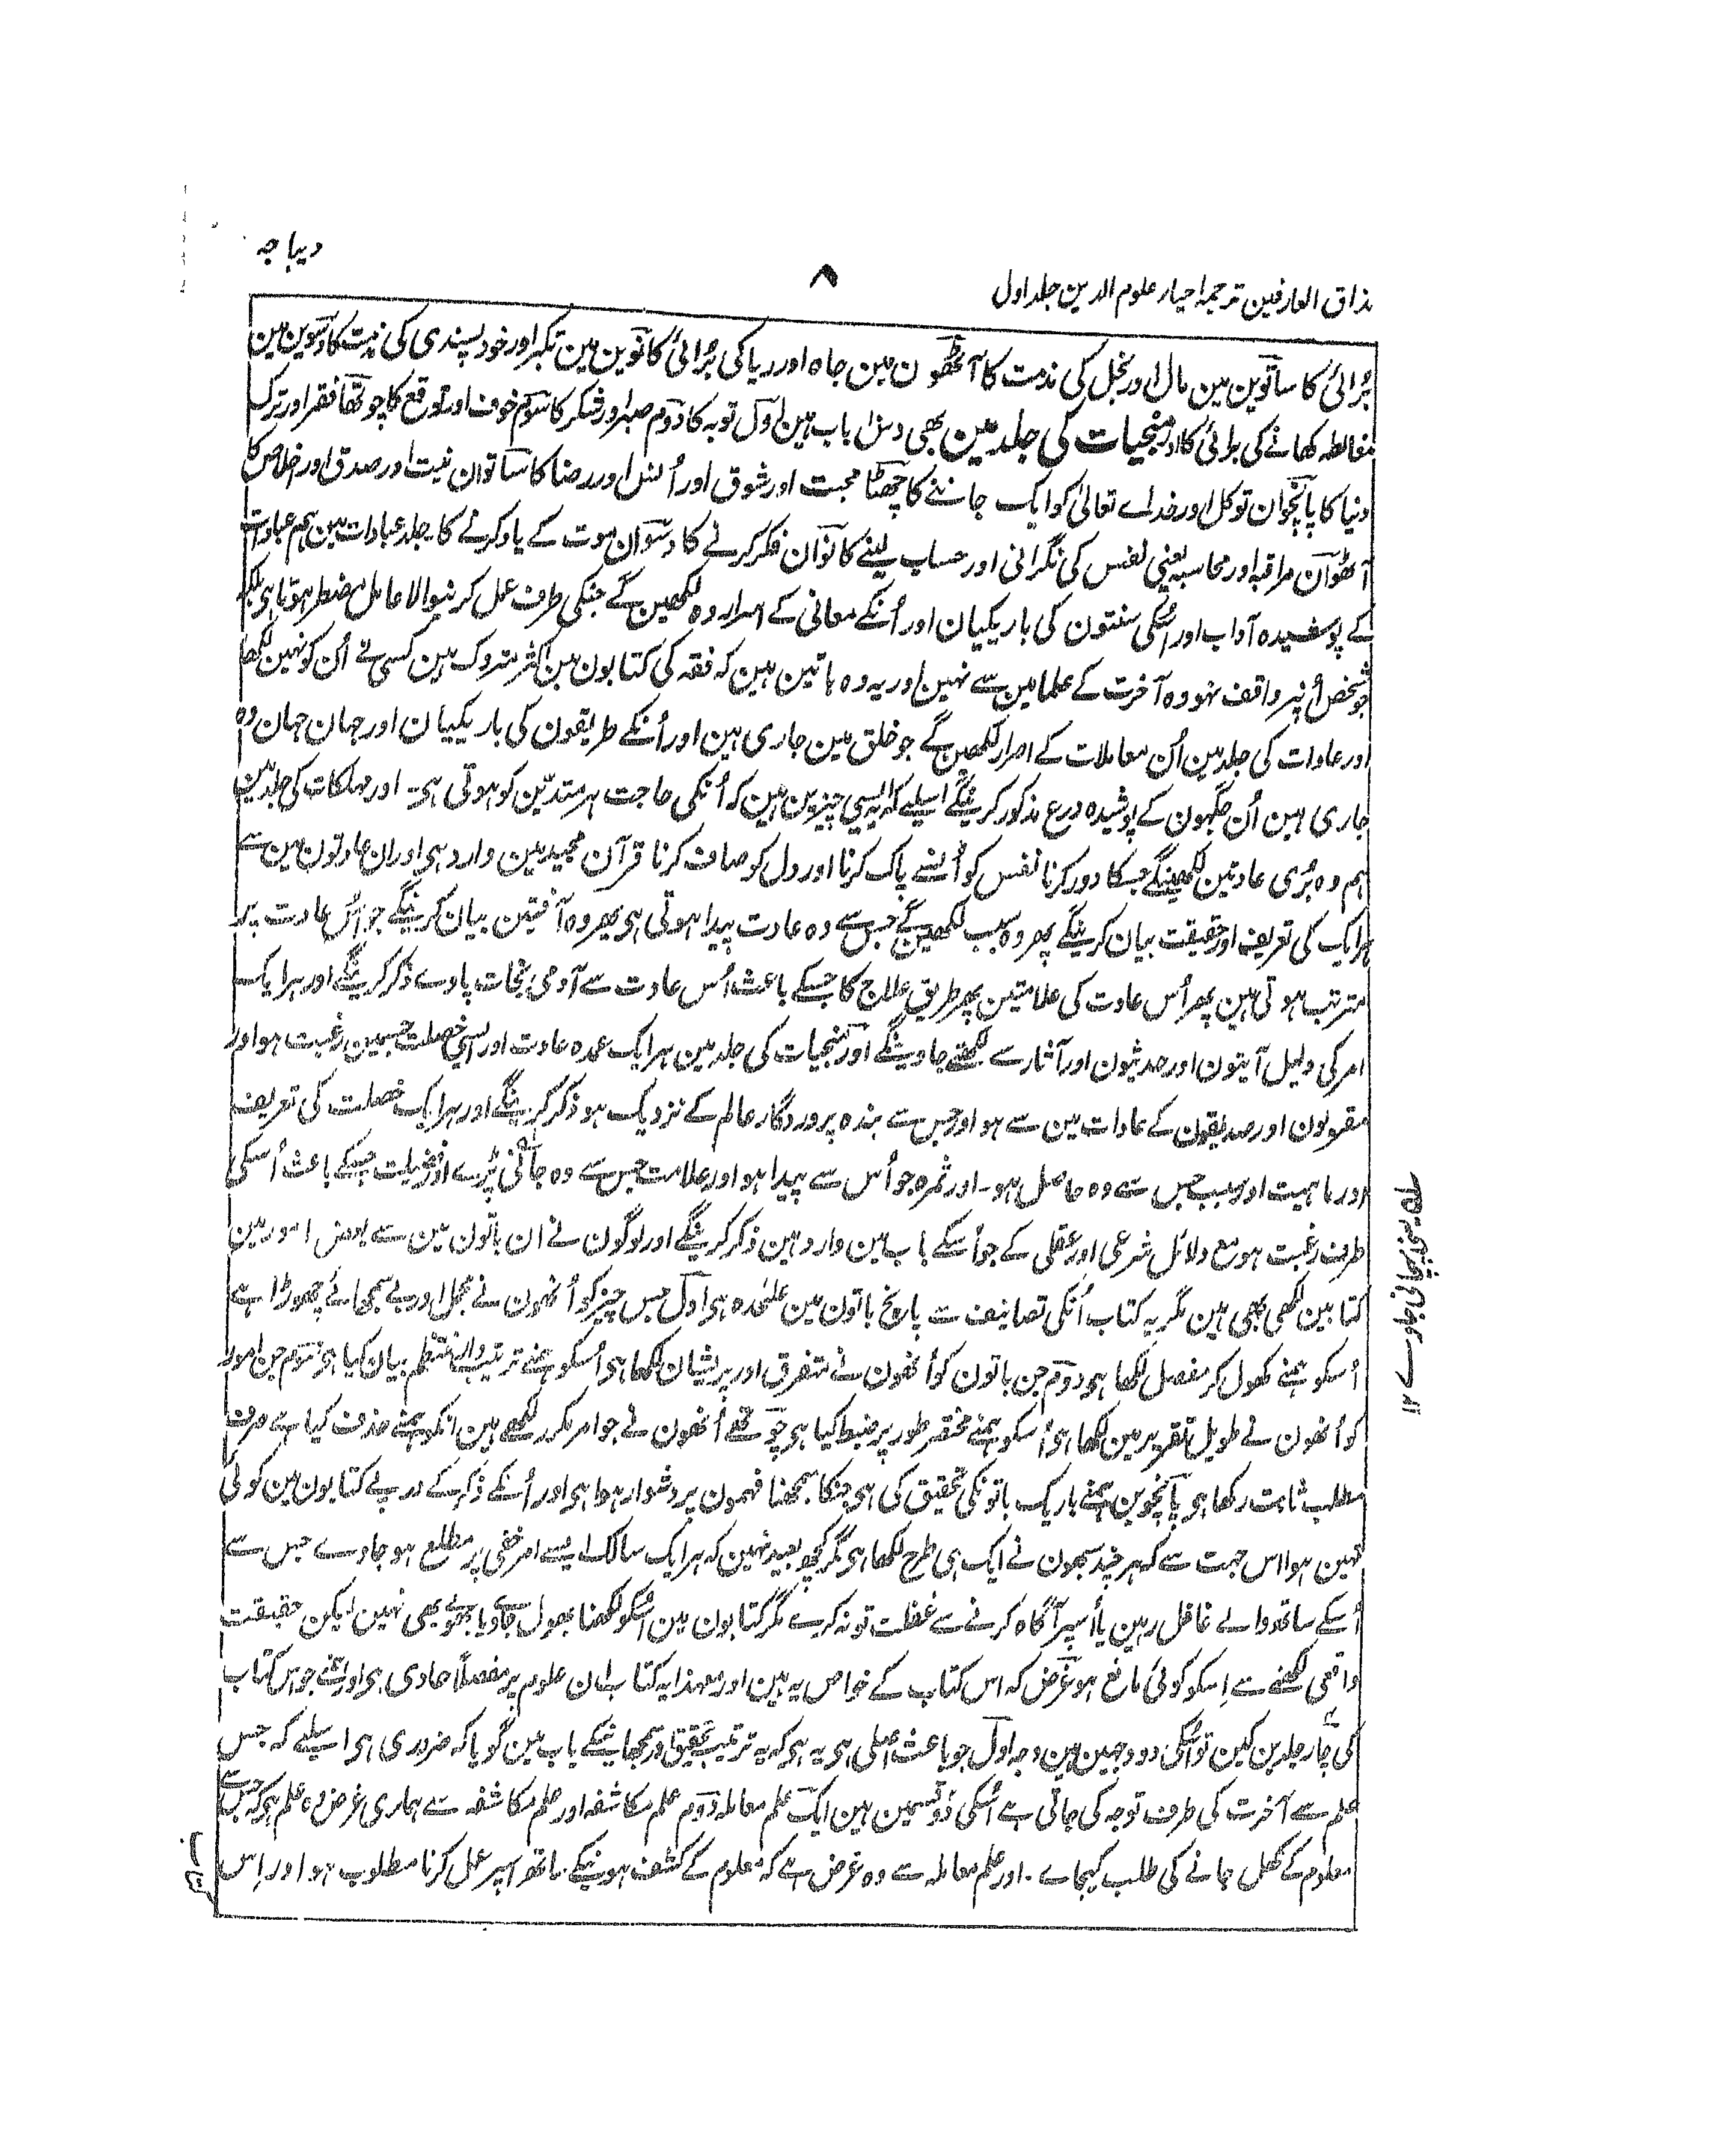 مذاق العارفین ترجمہ احیاء علوم الدین جلد اول
۸
دیباچہ
بُرائی کا ساتوین مین مال اور بخل کی مذمت کا آٹھوین مین جاہ اور ریا کی بُرائی کا نوین مین تکبر اور خود پسندی کی مذمت کا دسوین مین
مغالطہ کھانے کی برائی کا اور منجیات کی جلد مین بھی دس باب ہین اول توبہ کا دوم صبر اور شکر کا سوم خوف اور توقع کا چوتھا فقر اور ترک
دنیا کا پانچوان توکل اور خداے تعالیٰ کو ایک جاننے کا چھٹا محبت اور شوق اور اُنس اور رضا کا ساتوان نیت اور صدق اور اخلاص کا
آٹھوان مراقبہ اور محاسبہ یعنی نفس کی نگرانی اور حساب لینے کا نوان فکر کرنے کا دسوان موت کے یاد کرنے کا۔ جلد عبادات مین ہم عبادت
کے پوشیدہ آداب اور اُسکی سنتون کی باریکیان اور اُنکے معانی کے اسرار وہ لکھین گے جنکی طرف عمل کرنیوالا عامل مضطر ہوتا ہی بلکہ
جو شخص اُنپر واقف نہو وہ آخرت کے علما مین سے نہین اور یہ وہ باتین ہین کہ فقہ کی کتابون مین اکثر متروک ہین کسی نے اُن کو نہین لکھا
اور عادات کی جلد مین اُن معاملات کے اسرار لکھین گے جو خلق مین جاری ہین اور اُنکے طریقون کی باریکیان اور جہان جہان وہ
جاری ہین اُن جگہون کے پوشیدہ ورع مذکور کرینگے اسیلیے کہ یہ ایسی چیزین ہین کہ اُنکی حاجت ہر متدین کو ہوتی ہی۔ اور مہلکات کی جلد مین
ہم وہ بُری عادتین لکھینگے جسکا دور کرنا نفس کو اُنسے پاک کرنا اور دل کو صاف کرنا قرآن مجید مین وارد ہی اور ان عادتون مین سے
ہر ایک کی تعریف اور حقیقت بیان کرینگے پھر وہ سبب لکھین گے جس سے وہ عادت پیدا ہوتی ہی پھر وہ آفتین بیان کرینگے جو اُس عادت پر
مترتب ہوتی ہین پھر اُس عادت کی علامتین پھر طریق علاج کا جسکے باعث اُس عادت سے آدمی نجات پاوے ذکر کرینگے اور ہر ایک
امر کی دلیل آیتون اور حدیثون اور آثار سے لکھتے جاوینگے اور منجیات کی جلد مین ہر ایک عمدہ عادت اور ایسی خصلت جسمین رغبت ہو اور
مقربون اور صدیقون کے عادات مین سے ہو اور جس سے بندہ پروردگار عالم کے نزدیک ہو ذکر کرینگے اور ہر ایک خصلت کی تعریف
اور ماہیت اور سبب جس سے وہ حاصل ہو۔ اور ثمرہ جو اُس سے پیدا ہو اور علامت جس سے وہ جانی پڑے اور فضیلت جسکے باعث اُسکی
طرف رغبت ہو مع دلائل شرعی اور عقلی کے جو اُسکے باب مین وارد ہین ذکر کرینگے اور لوگون نے ان باتون مین سے بعض امور مین
کتابین لکھی بھی ہین مگر یہ کتاب اُنکی تصانیف سے پانچ باتون مین علٰحدہ ہی اول جس چیز کو اُنھون نے مجمل اور بے سمجھائے چھوڑا ہے
اُسکو ہمنے کھول کر مفصل لکھا ہی دوم جن باتون کو اُنھون نے متفرق اور پریشان لکھا ہی اُسکو ہمنے ترتیب وار منتظم بیان کیا ہی سوم جن امور
کو اُنھون نے طویل تقریر مین لکھا ہی اُسکو ہمنے مختصر طور پر ضبط کیا ہی چوتھے اُنھون نے جو امر مکرر لکھے ہین انکو ہمنے حذف کیا ہے صرف
مطلب ثابت رکھا ہی پانچوین ہمنے باریک باتونکی تحقیق کی ہی جنکا سمجھنا فہمون پر دشوار ہوا ہی اور اُنکے ذکر کے درپے کتابون مین کوئی
نہین ہوا اس جہت سے کہ ہر چند سبھون نے ایک ہی طرح لکھا ہی مگر کچھ بعید نہین کہ ہر ایک سالک ایسے امر خفی پر مطلع ہو جاوے جس سے
اُسکے ساتھ والے غافل رہین یا اُسپر آگاہ کرنے سے غفلت تو نہ کرے مگر کتابون مین اُسکو لکھنا بھول جاوے یا بھولے بھی نہین لیکن حقیقت
واقعی لکھنے سے اِسکو کوئی مانع ہو غرض کہ اس کتاب کے خواص یہ ہین اور معہذا یہ کتاب ان علوم پر مفصلاً حاوی ہی اور ہمنے جو اس کتاب
کی چار جلدین کین تو اُسکی دو وجہین ہین وجہ اول جو باعث اصلی ہی یہ ہی کہ یہ ترتیب تحقیق اور سمجھانیکے باب مین گویا کہ ضروری ہی اسیلیے کہ جس
علم سے آخرت کی طرف توجہ کی جاتی ہے اُسکی دو قسمین ہین ایک علم معاملہ دوم علم مکاشفہ اور علم مکاشفہ سے ہماری غرض وہ علم ہی کہ جس سے
معلوم کے کھل جانے کی طلب کیجاے۔ اور علم معاملہ سے وہ غرض ہے کہ معلوم کے کشف ہونیکے ساتھ اسپر عمل کرنا مطلوب ہو اور اِس
یعنی پہچانی جاوے ۱۲
کتاب